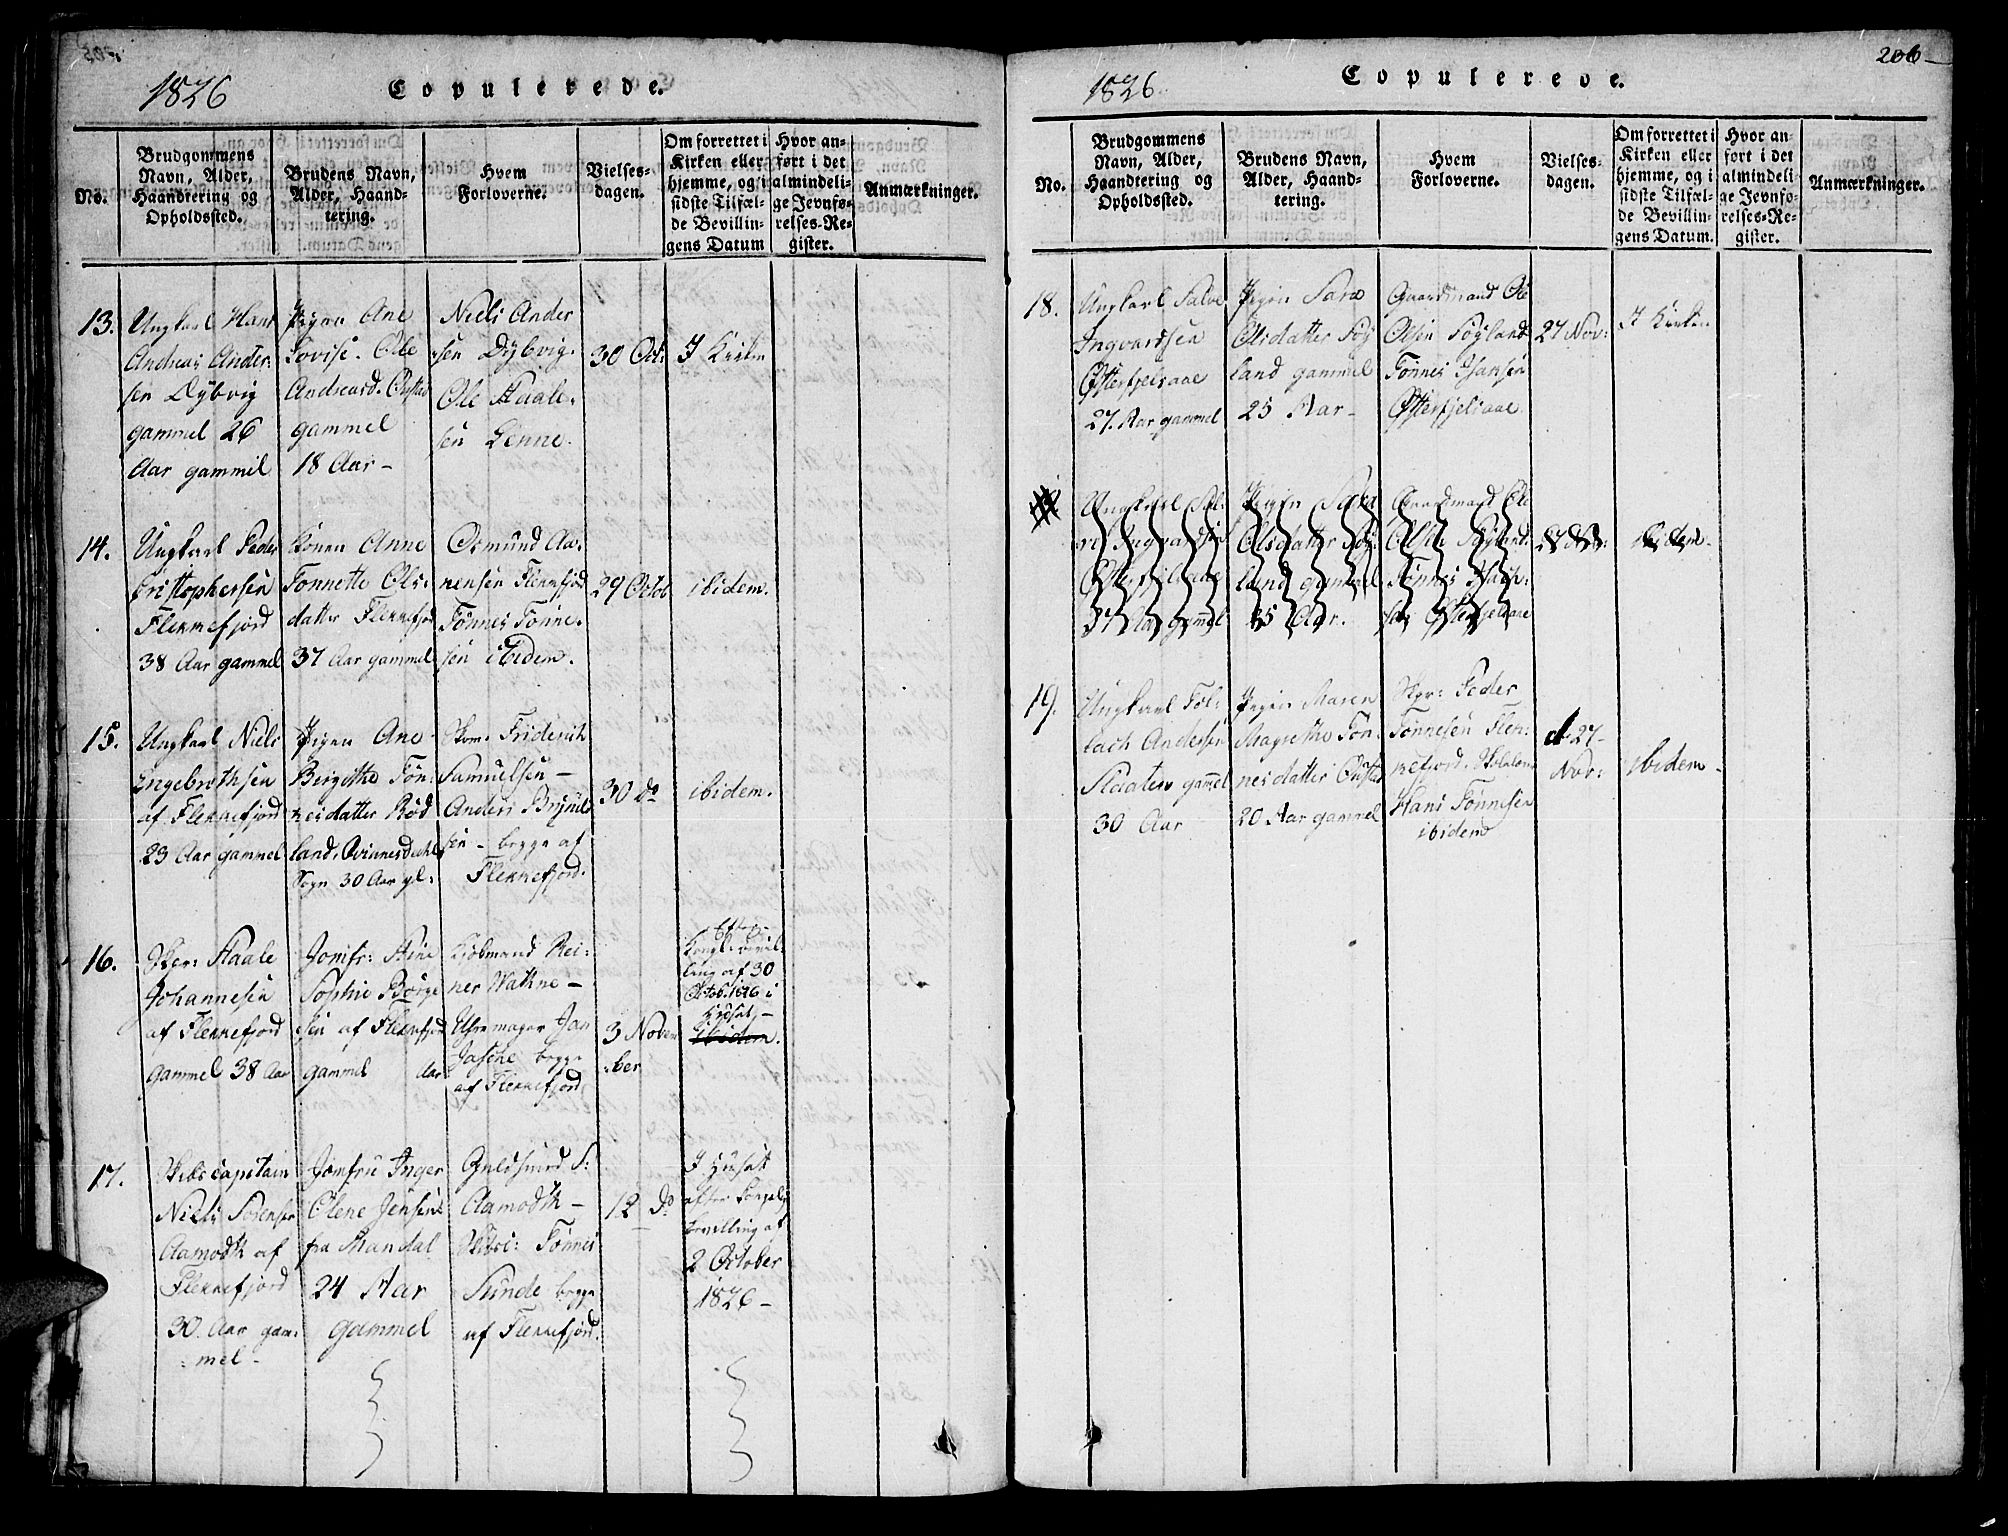 1826
Copulerede.
No.
Brudgommens
Navn, Alder,
Haandtering og
Opholdssted.
Brudens Navn,
Alder, Haand-
tering.
Hvem
Forloverne.
Vielses-
dagen.
Om forrettet i
Kirken eller
hjemme, og i
sidste Tilfæl-
de Bevillin-
gens Datum
Hvor an-
ført i det
almindeli-
ge Jevnfø-
relses-Re-
gister.
Anmærkninger.
13.
Ungkarl Hans
Andreas Ander-
sen Dybvig
gammel 26
Aar gammel
Pigen Ane
Lovise. Ole
Andreasd.
gammel
18 Aar -
Niels Ander
sen Dybvig.
Ole Aaale-
sen Lenne.
30 Oct:
I Kirken
14.
Ungkarl Peder
Cristophersen
Flekkefjord
38 Aar gammel
Konen Anne
Tonnette Ols-
datter Flekkefjord
37 Aar gammel
Osmund Aa-
nensen Flekkefjord
Tönnes Tönne-
sen ibidem.
29 Octob
ibidem.
15.
Ungkarl Niels
Engebrethsen
af Flekkefjord
23 Aar gammel
Pigen Ane
Bergithe Tön-
nesdatter Röd
land, Qvinnesdahls
Sogn 30 Aar gl:
Skom. Friderich
Samuelsen -
Anders Brynild
sen - begge af
Flekkefjord.
30 do
ibidem.
16.
Skpr: Aaale
Johannesen
af Flekkefjord
gammel 38 Aar
Jomfr: Aine
Sophie Börge
sen af Flekkefjord
gammel Aar
Kjöbmand Rei-
ner Wathne -
Uhrmager Jan
Jasche begge
af Flekkefjord
3 Novem
ber
efter
Kongl: Bevil-
ling af 30
Octob. 1826 i
Huset -
ibidem.
17.
Skibscapitain
Niels Sörensen
Aamodth af
Flekkefjord
30 Aar gam-
mel -
Jomfru Inger
Olene Jensens
fra Mandal
24 Aar
gammel
Guldsmed S:
Aamodth -
Skibsc: Tönnes
Sunde begge
af Flekkefjord.
12 do
I Huset
efter Kongelig
bevilling af
2 October
1826 -
206
1826
Copulerede.
No.
Brudgommens
Navn, Alder,
Haandtering og
Opholdssted.
Brudens Navn,
Alder, Haand-
tering.
Hvem
Forloverne.
Vielses-
dagen.
Om forrettet i
Kirken eller
hjemme, og i
sidste Tilfæl-
de Bevillin-
gens Datum.
Hvor an-
ført i det
almindeli-
ge Jevnfø-
relses-Re-
gister.
Anmærkninger.
18.
Ungkarl Salve
Ingvardsen
Østerfjelsaae
27. Aar gammel
Pigen Sara
Olsdatter Söy
land gammel
25 Aar -
Gaardmand Ole
Olsen Söyland
Tönnes Hansen
Østerfjelsaae
27 Nov:
I Kirken
Ungkarl Sal-
ve Ingvardsen
Østerfjelsaae
27 Aar gammel
Pigen Sara
Olsdatter Söy-
land gammel
25 Aar.
Gaardmand Ole
Olsen Söyland
Tönnes Han-
sen Østerfjelsaae
27 Nov:
ibidem.
19.
Ungkarl Tol-
lach Andersen
Slaaten gammel
30 Aar
Pigen Maren
Magrethe Tön-
nesdatter
20 Aar gammel
Skpr: Peder
Tönnesen Flek-
kefjord.
Hans Tönnesen
ibidem
d. 27
Nov:
ibidem -